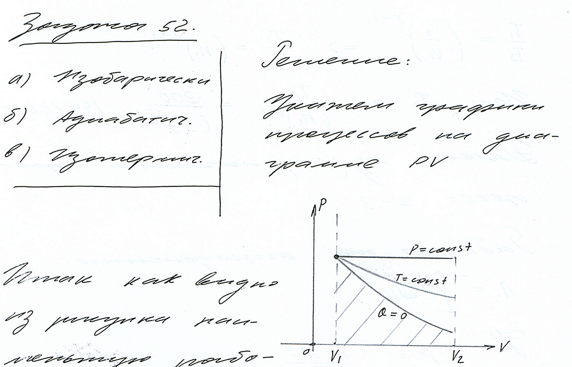 Задача 52.
а) Изобарически
б) Адиабатич.
в) Изотермич.
Решение:
Укажем графики
процессов на диа-
грамме PV
P
P=const
T=const
Q=0
0
V1
V2
V
Итак как видно
из рисунка наи-
меньшую рабо-